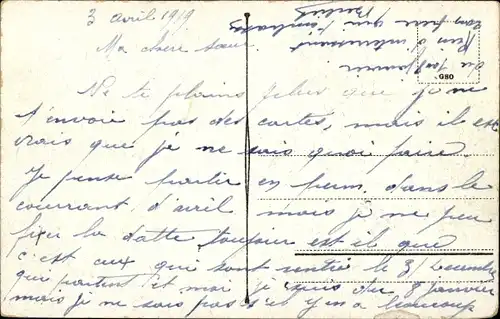 3 avril 1919
Ma chère sœur
Ne te plains plus que je ne
t'envoie pas des cartes, mais il est
vrais que je ne sais quoi faire.
Je pense partir en perm. dans le
courant d'avril mais je ne peu
fixé la datte, toujour est il que
c'est aux qui sont rentré le 31 Decembre
qui partent et moi je suis du 8 janvier
mais je ne sais pas s'il y en a beaucoup
ton frère qui t'embrasse
Rien d'interessant
G80